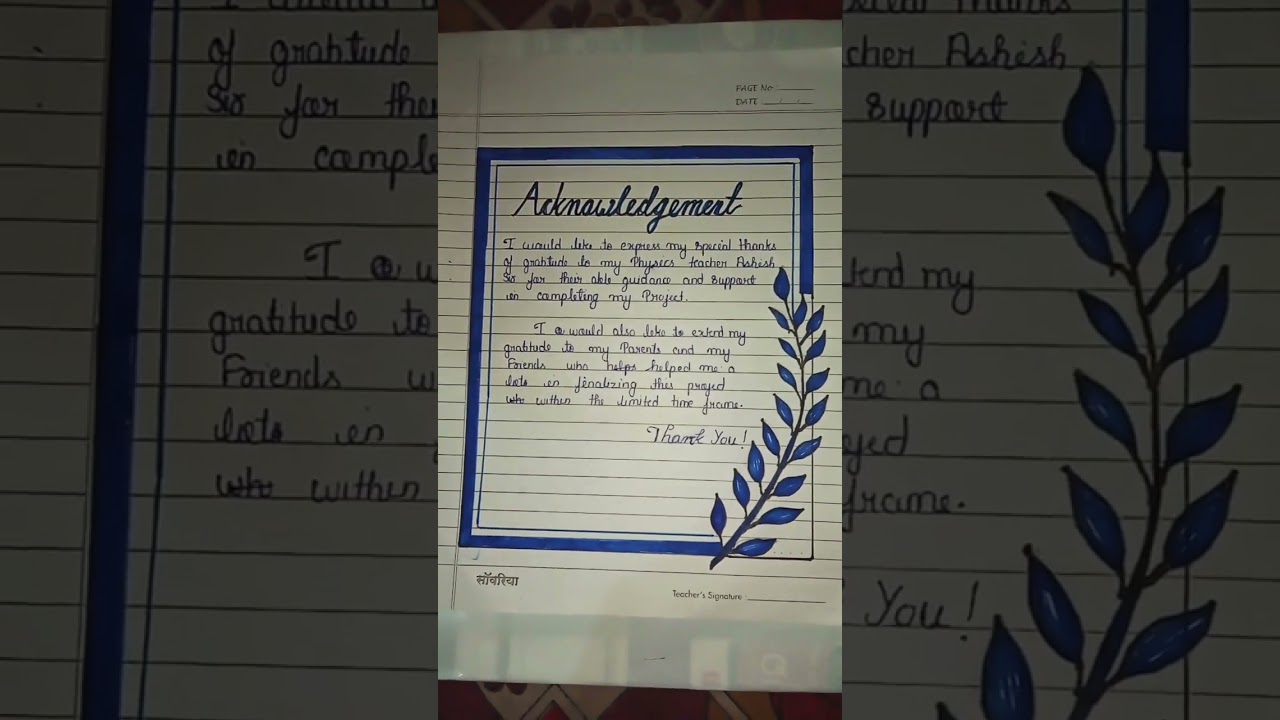 PAGE No
DATE : / /
Acknowledgement
I would like to express my special thanks
of gratitude to my Physics teacher Ashish
Sir for their able guidance and support
in completing my Project.
I would also like to extend my
gratitude to my Parents and my
Friends who helps helped me a
lots in finalizing this project
who within the limited time frame.
Thank You!
सॉवरिया
Teacher's Signature